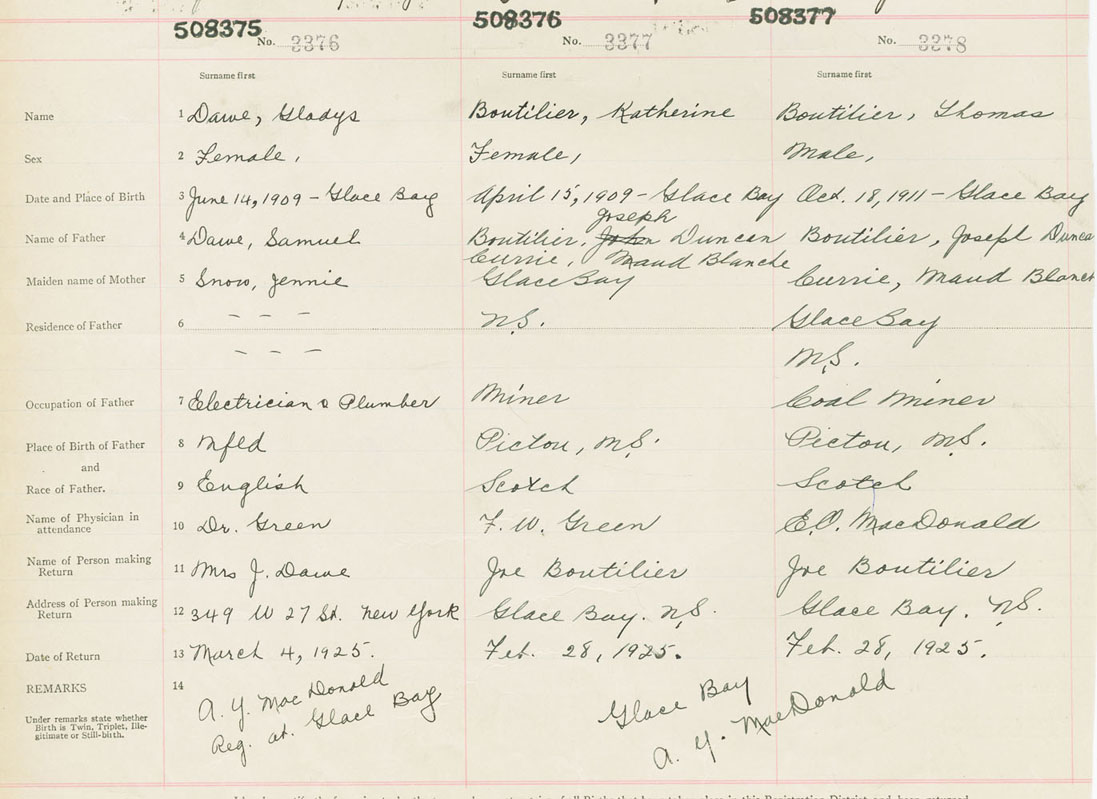 508375 508376 508377
No. 3376 No. 3377 No. 3378
Surname first Surname first Surname first
Name 1 Dawe, Gladys Boutilier, Katherine Boutilier, Thomas
Sex 2 Female, Female, Male,
Date and Place of Birth 3 June 14, 1909 - Glace Bay April 15, 1909 - Glace Bay Oct. 18, 1911 - Glace Bay
Joseph
Name of Father 4 Dawe, Samuel Boutilier, John Duncan Boutilier, Joseph Dunca
Currie, Maud Blanche
Maiden name of Mother 5 Snow, Jennie Glace Bay Currie, Maud Blanch
Residence of Father 6 — — — N.S. Glace Bay
— — — N.S.
Occupation of Father 7 Electrician & Plumber Miner Coal Miner
Place of Birth of Father 8 Nfld Pictou, N.S. Pictou, N.S.
and
Race of Father. 9 English Scotch Scotch
Name of Physician in
attendance 10 Dr. Green F. W. Green E.O. MacDonald
Name of Person making
Return 11 Mrs J. Dawe Joe Boutilier Joe Boutilier
Address of Person making
Return 12 349 W 27 St. New York Glace Bay. N.S. Glace Bay. N.S.
Date of Return 13 March 4, 1925. Feb. 28, 1925. Feb. 28, 1925.
REMARKS 14 A. Y. MacDonald Glace Bay
Reg. at Glace Bay A. Y. MacDonald
Under remarks state whether
Birth is Twin, Triplet, Ille-
gitimate or Still-birth.